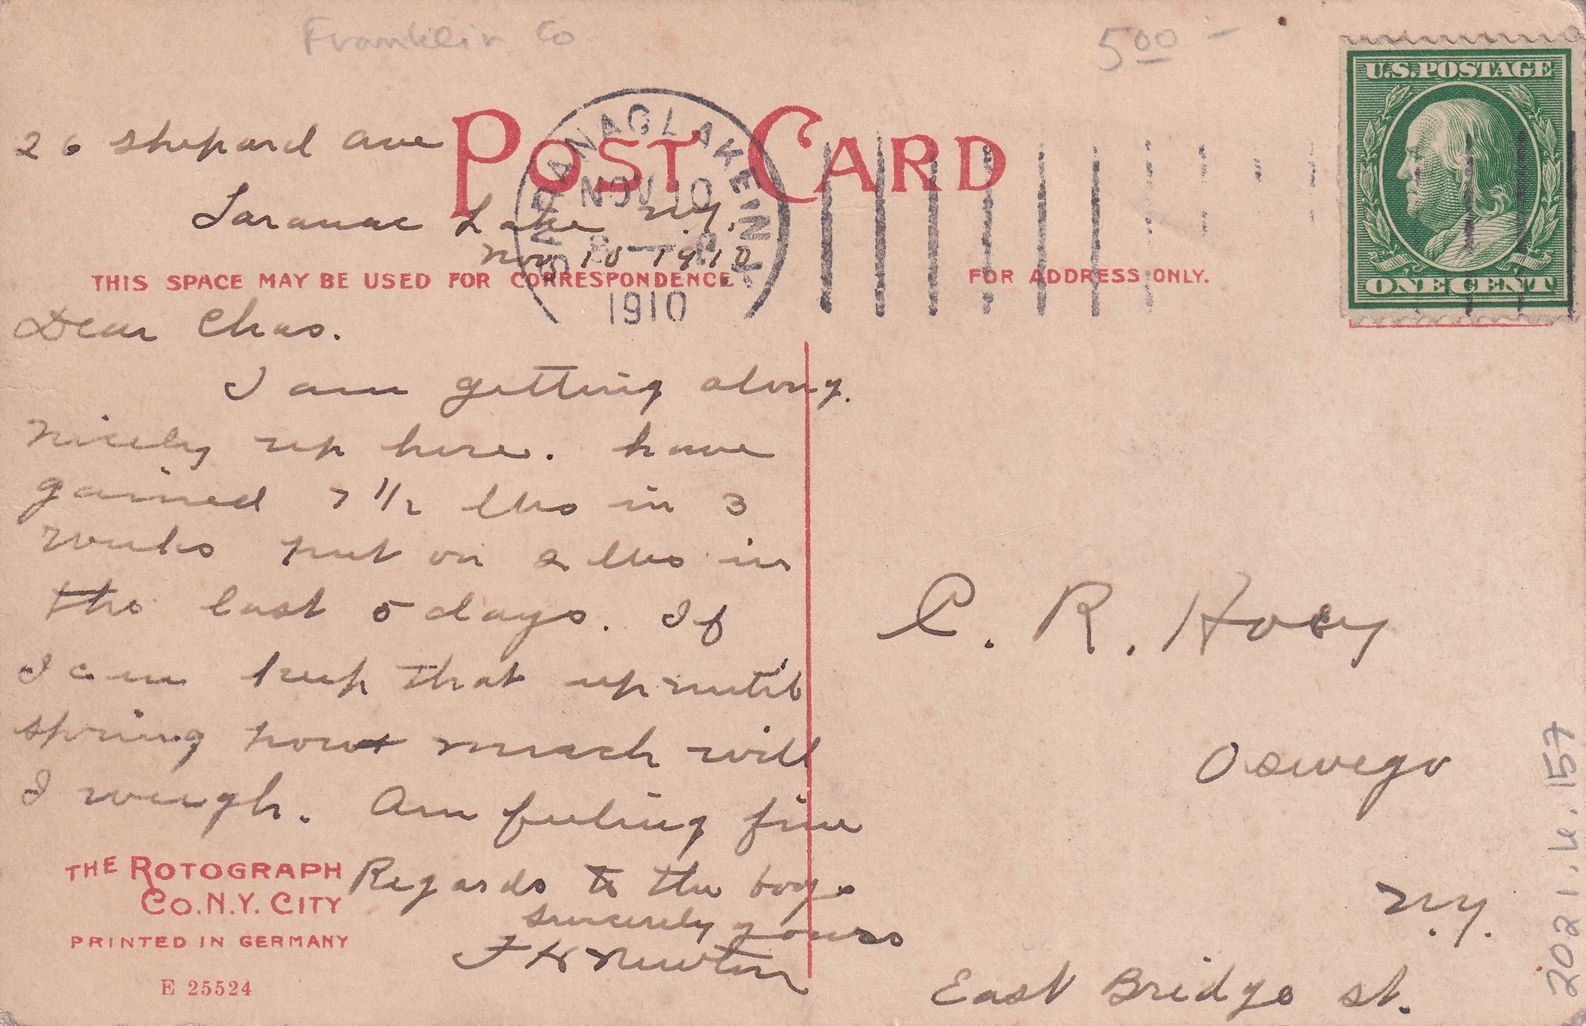 Franklin Co
5.00 -
U.S. POSTAGE
ONE CENT
POST CARD
SARANAC LAKE, N.Y.
NOV 10
1910
THIS SPACE MAY BE USED FOR CORRESPONDENCE
FOR ADDRESS ONLY.
26 Shepard Ave
Saranac Lake N.Y.
Nov 10 1910
Dear Chas.
I am getting along
nicely up here. have
gained 7 1/2 lbs in 3
weeks put on 2 lbs in
the last 5 days. If
I can keep that up until
spring how much will
I weigh. Am feeling fine
Regards to the boys
Sincerely yours
F H Newton
C. R. Hoey
Oswego
N.Y.
East Bridge St.
THE ROTOGRAPH
CO. N.Y. CITY
PRINTED IN GERMANY
E 25524
2021.16.157